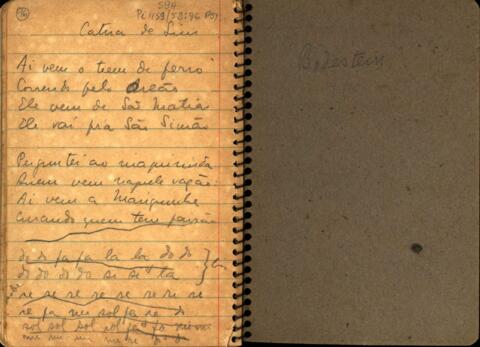 76
584
Catira de Lins
Ai vem o trem de ferro
Correndo pelo areão
Ele vem de São Matia
Ele vai pra São Simão
Perguntei ao maquinista
Quem vem naquele vagão:
Ai vem a
Curando quem tem paixão
do do fa fa la la do do
do do do do si si la
re re re re re re re re
re fa mi sol fa re do
sol sol sol sol fa fa mi mi
mi mi mi mi re do do